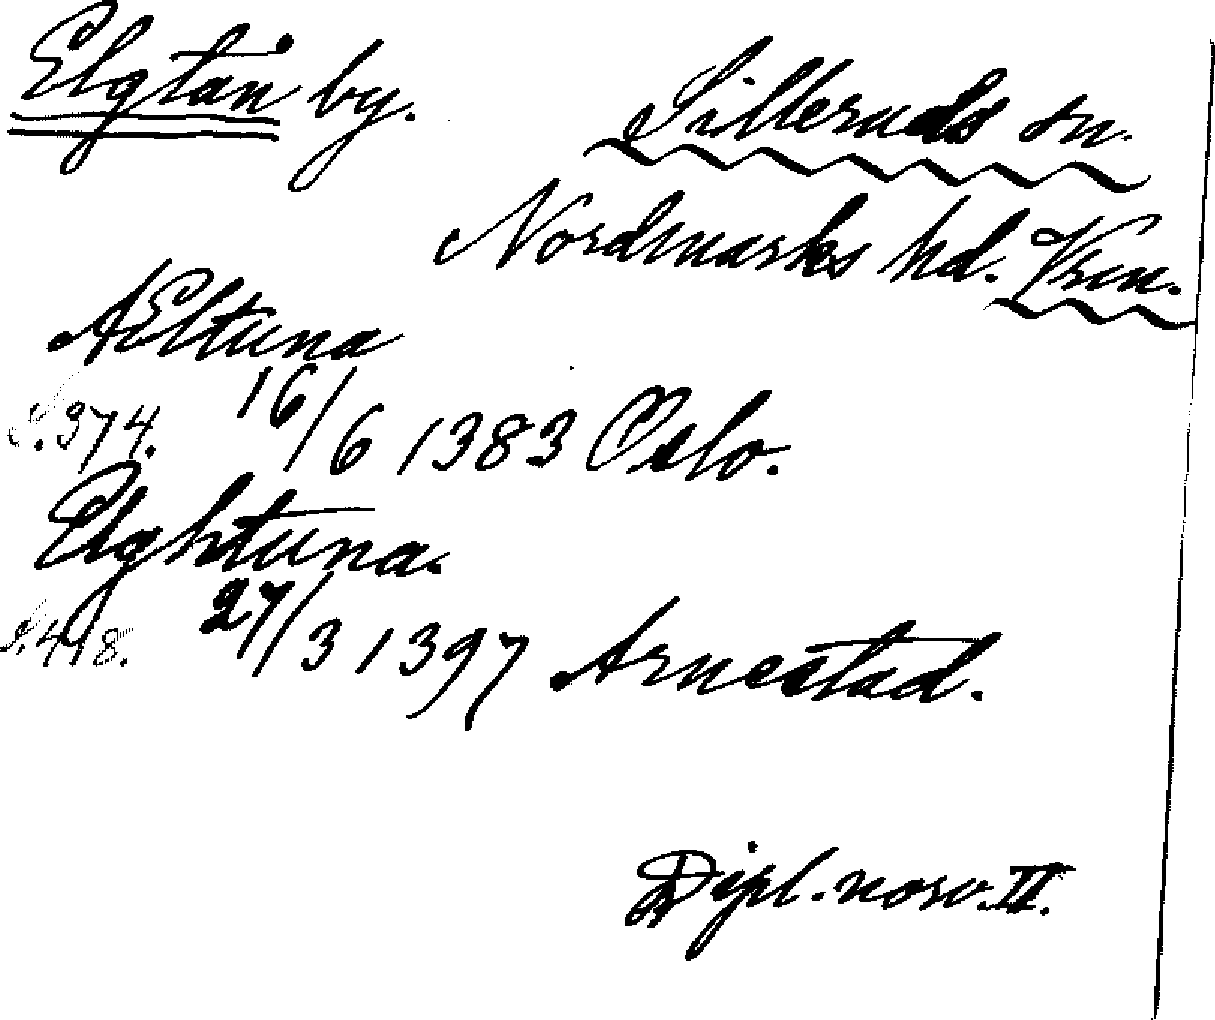 Elgtån by.
Silleruds sn.
Nordmarks hd. Vrm.
AEltuna
S.374. 16/6 1383 Oslo.
Elghtuna.
S.418. 27/3 1397 Arnestad.
Dipl. norv. II.